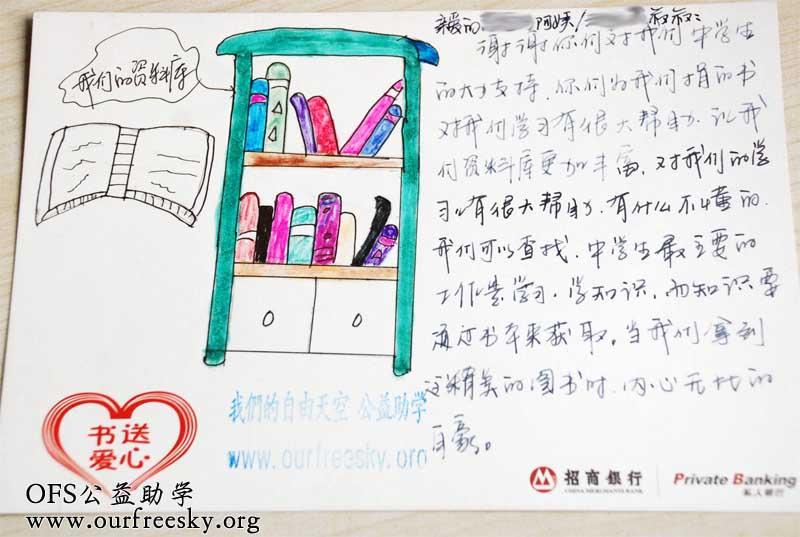 我们的资料库
亲爱的 阿姨/ 叔叔:
谢谢你们对我们中学生
的大力支持，你们为我们捐的书
对我们学习有很大帮助，让我
们资料库更加丰富，对我们的学
习有很大帮助，有什么不懂的，
我们可以查找，中学生最主要的
工作是学习，学知识，而知识要
通过书本来获取，当我们拿到
这精美的图书时，内心无比的
自豪。
书送
爱心
我們的自由天空 公益助学
www.ourfreesky.org
招商銀行
CHINA MERCHANTS BANK
Private Banking
私人銀行
OFS公益助学
www.ourfreesky.org